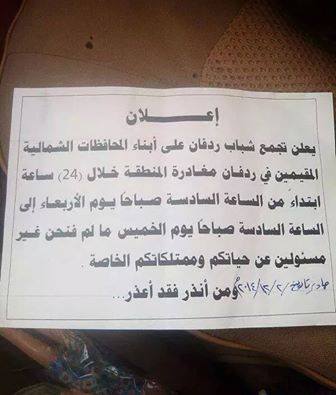 إعـــــــلان
يعلن تجمع شباب ردفان على أبناء المحافظات الشمالية
المقيمين في ردفان مغادرة المنطقة خلال (24) ساعة
ابتداء من الساعة السادسة صباحاً يوم الأربعاء إلى
الساعة السادسة صباحاً يوم الخميس ما لم فنحن غير
مسئولين عن حياتكم وممتلكاتكم الخاصة .
ومن أنذر فقد أعذر...
صادر بتاريخ ٢٠١٤/١٢/٢